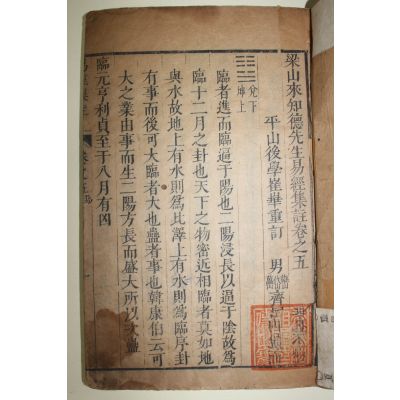 梁山來知德先生易經集註卷之五
平山後學崔華重訂 男 齊
兌下
坤上
臨者進而臨逼于陽也二陽浸長以逼于陰故爲
臨十二月之卦也天下之物密近相臨者莫如地
與水故地上有水則爲比澤上有水則爲臨序卦
有事而後可大臨者大也蠱者事也韓康伯云可
大之業由事而生二陽方長而盛大所以次蠱
臨元亨利貞至于八月有凶